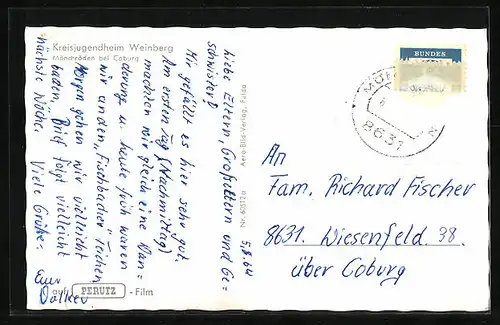 Kreisjugendheim Weinberg
Mönchröden bei Coburg
Aero-Bild-Verlag, Fulda
Nr. 60512a
5.8.64
Liebe Eltern, Großeltern und Ge-
schwister!
Mir gefällts es hier sehr gut.
Am ersten Tag (Nachmittag)
machten wir gleich eine Wan=
derung u. heute früh waren
wir an den „Fischbacher" Teichen.
Morgen gehen wir vielleicht
baden. Brief folgt vielleicht
nächste Woche. Viele Grüße.
Euer
Volker
auf PERUTZ - Film
BUNDES
MÖN
8631
An
Fam. Richard Fischer
8631. Wiesenfeld 38.
über Coburg